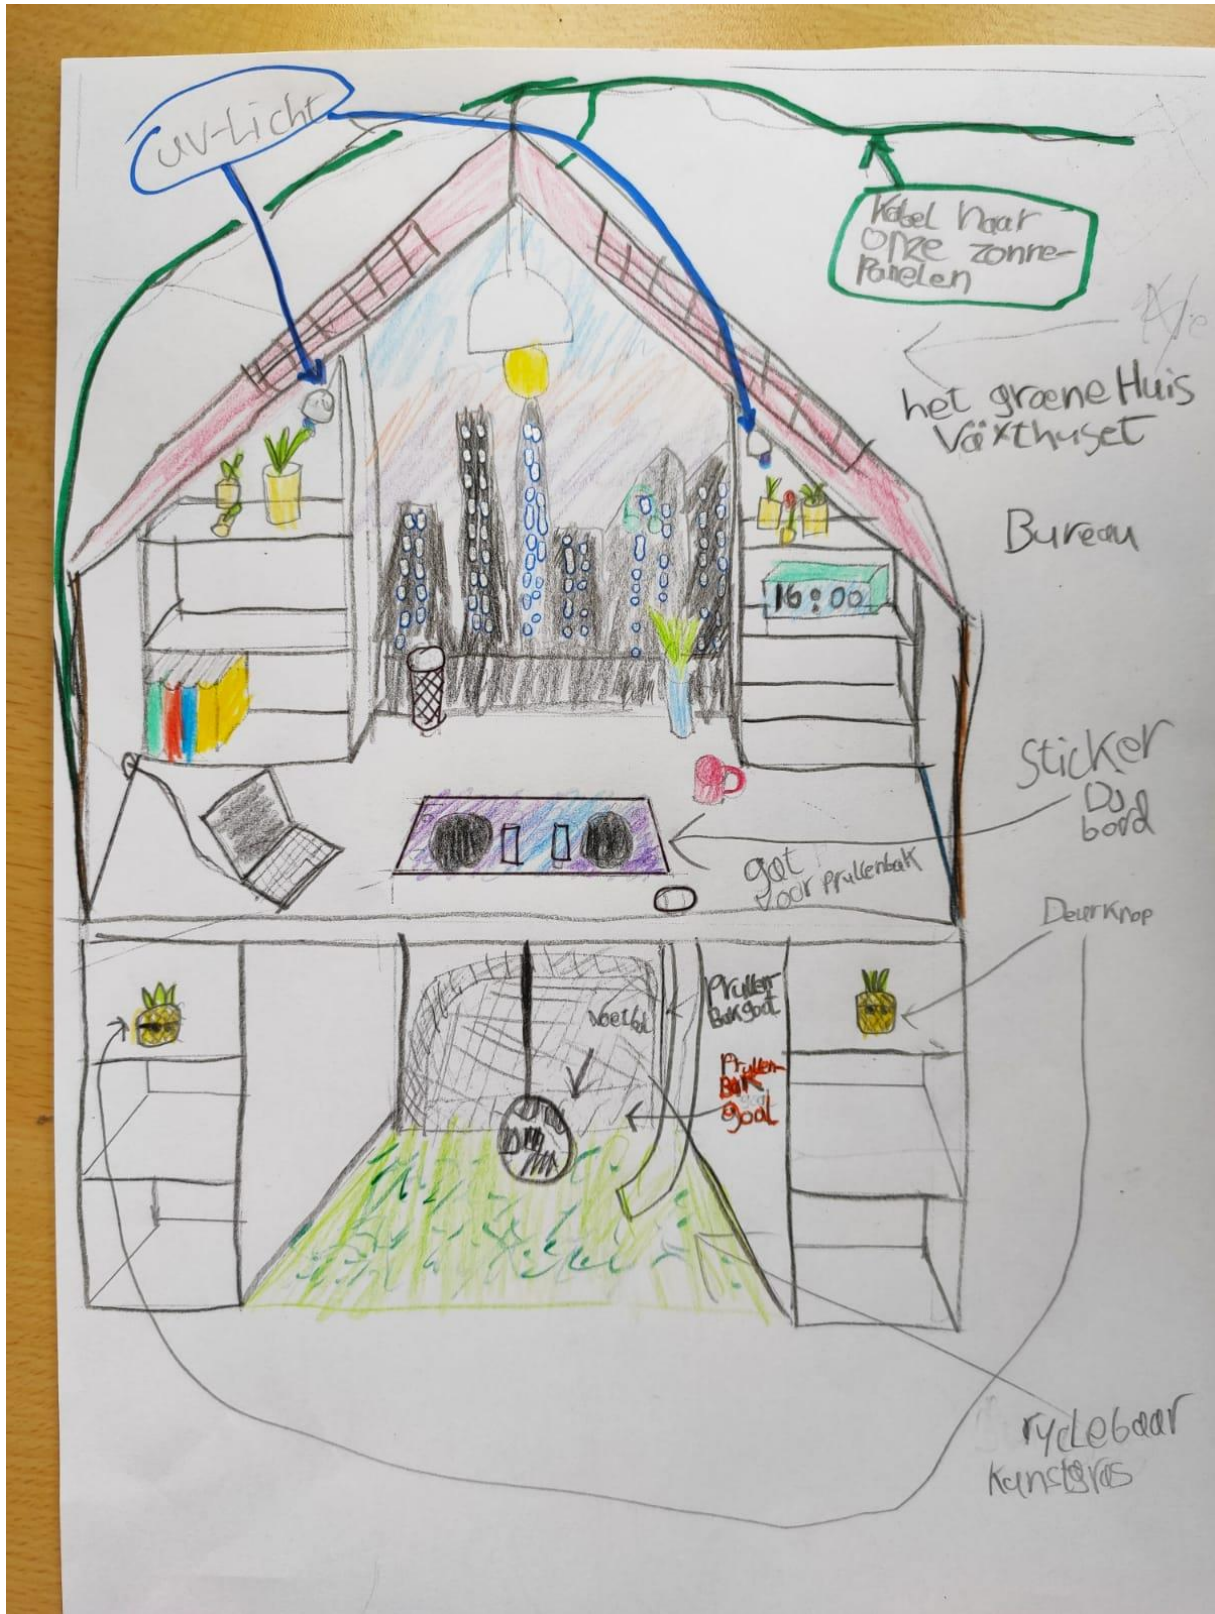 uv-Licht
Kabel naar
onze zonne-
Panelen
het groene Huis
Växthuset
Bureau
16:00
Sticker
DJ
bord
gat
voor prullenbak
Deurknop
Prullen-
Bakgoot
Voetbal
Prullen-
BaK
goal
ryclebaar
kunstgras